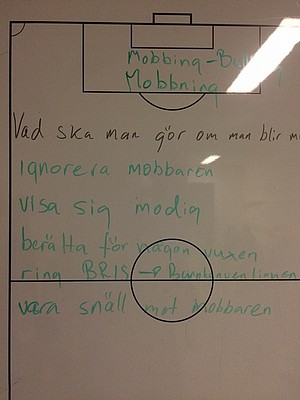 Mobbing - Bullying
Mobbning
Vad ska man gör om man blir
ignorera mobbaren
visa sig modig
berätta för någon vuxen
ring BRIS →
vara snäll mot mobbaren